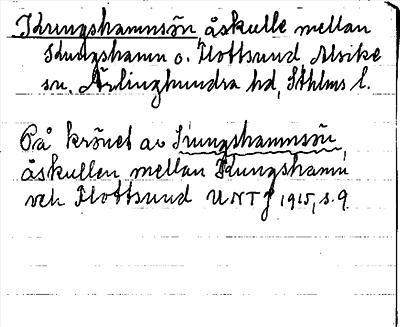 Kungshamnsön, åskulle mellan
Kungshamn o. Flottsund Alsike
sn. Ärlinghundra hd, Sthlms l.
På krönet av Kungshamnsön,
åskullen mellan Kungshamn
och Flottsund UNTJ 1915, s. 9